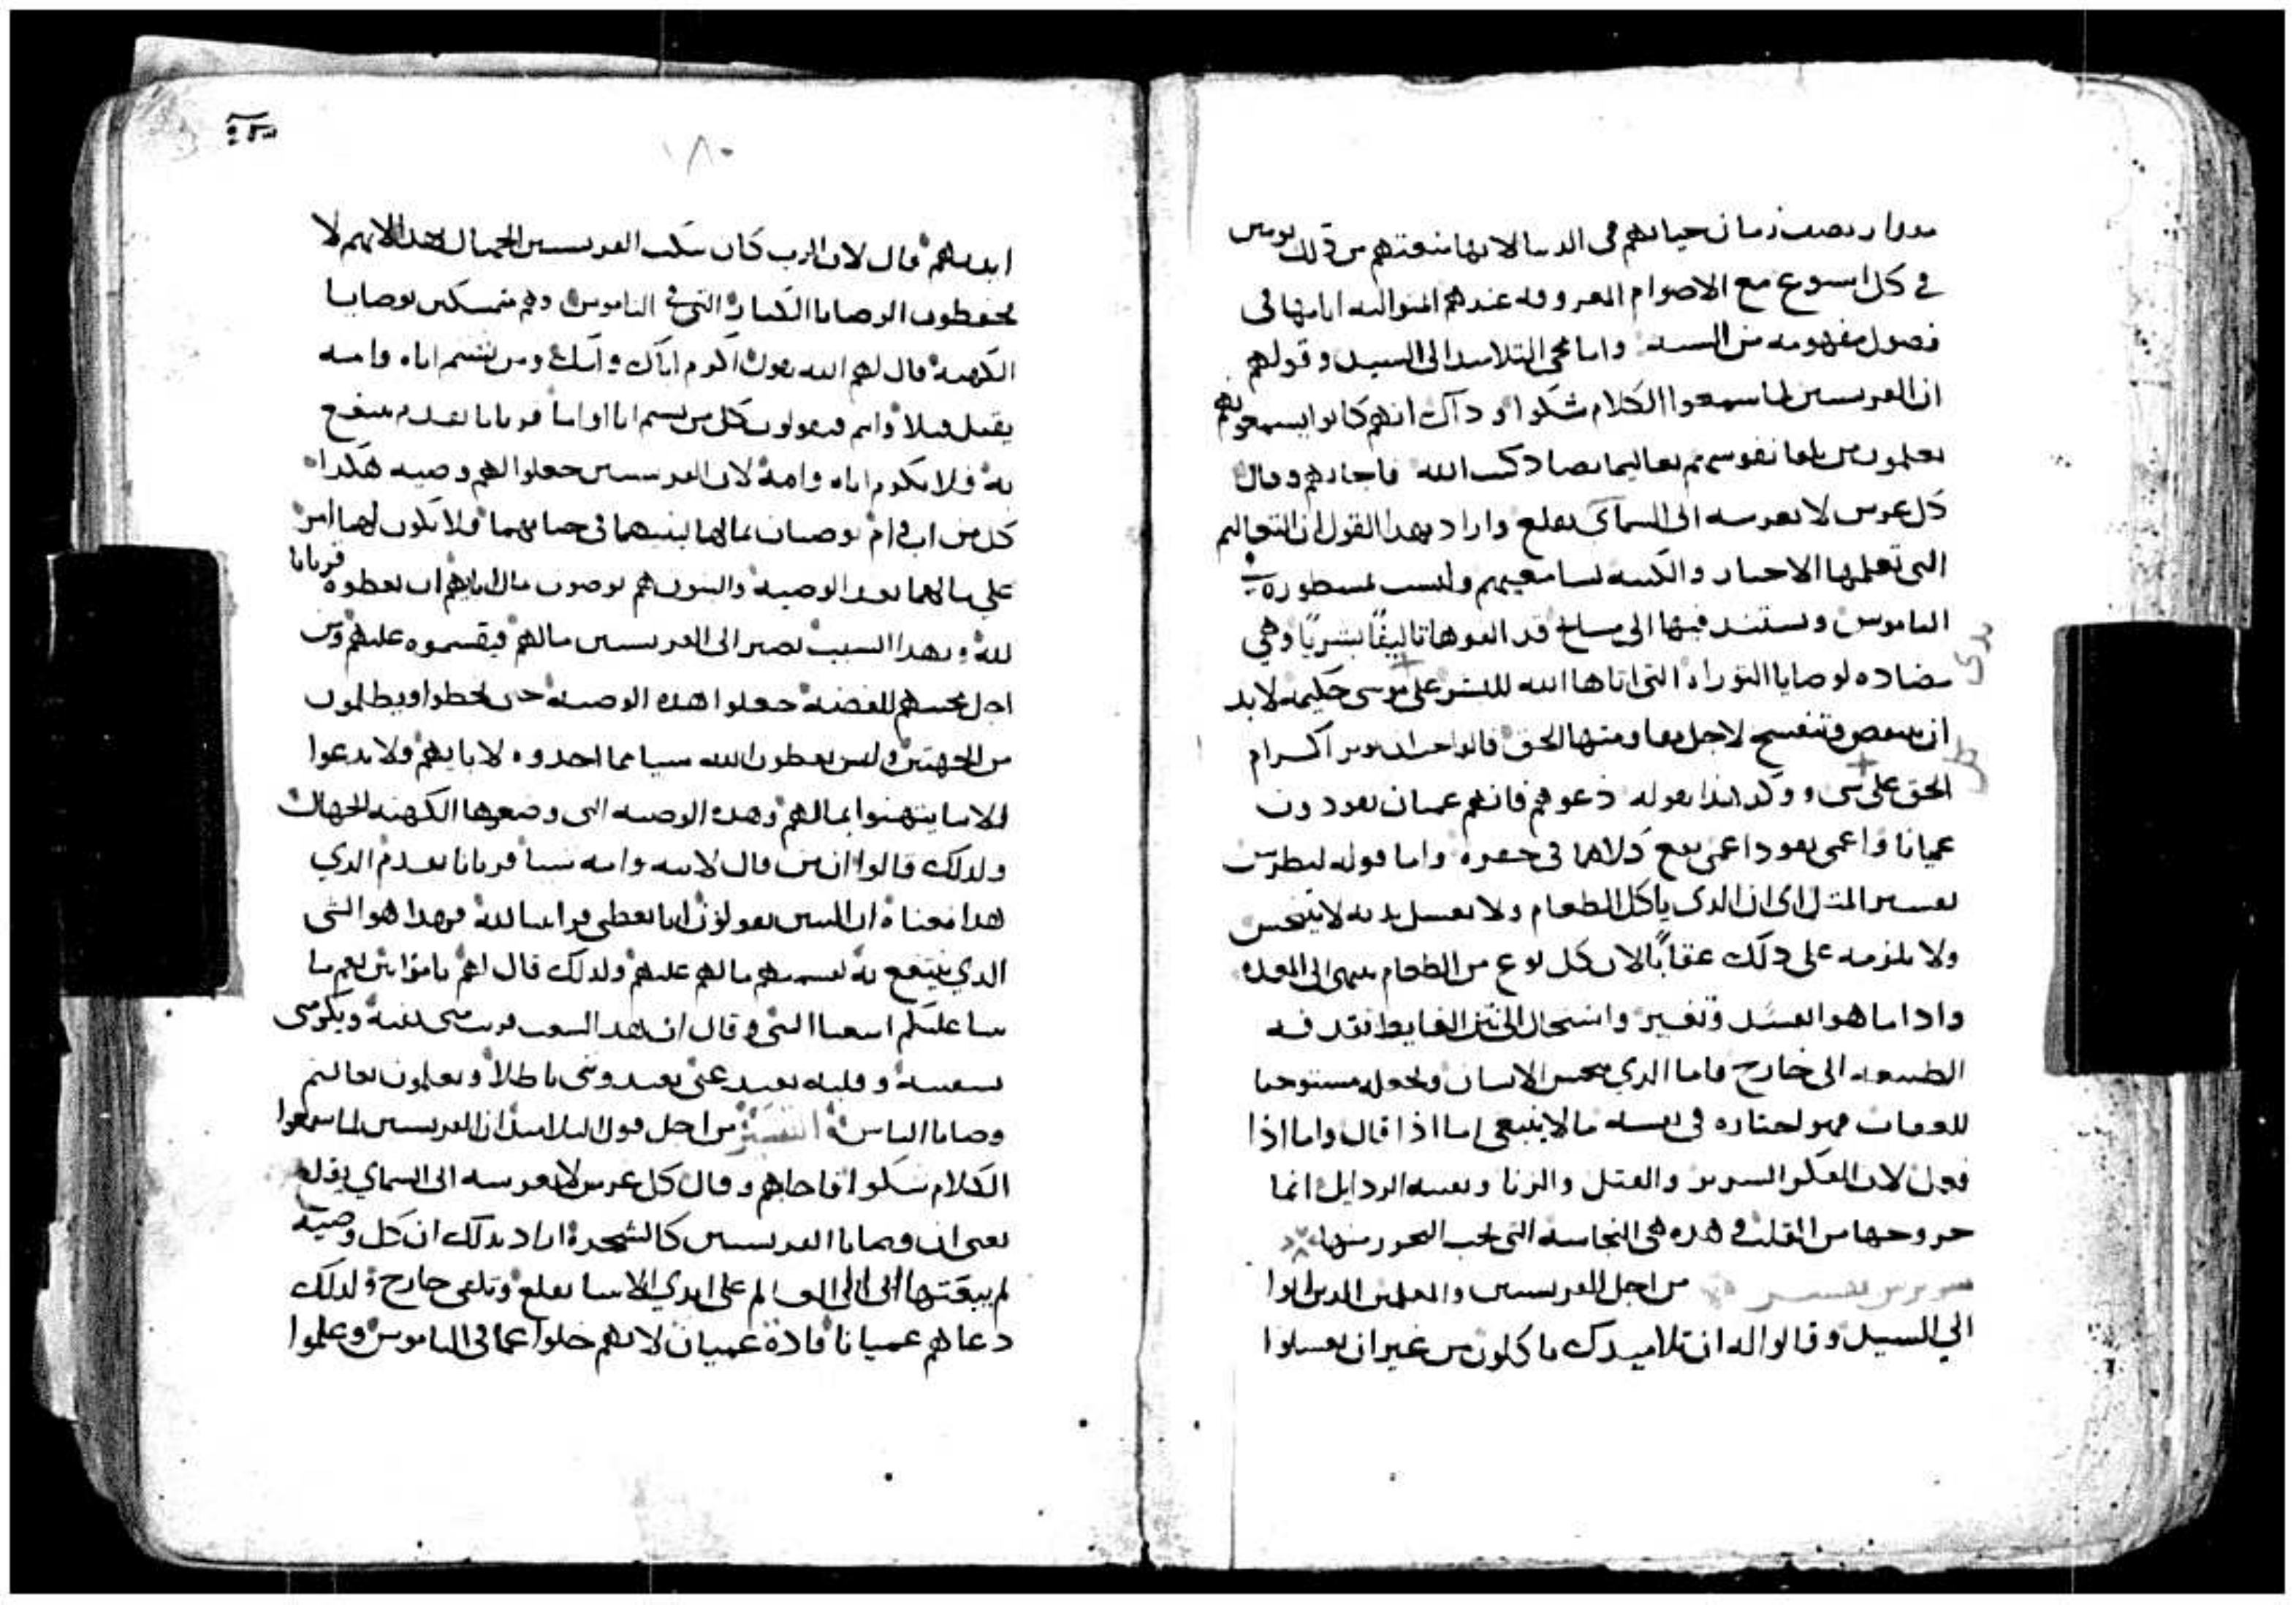 مقدار نصف زمان حياتهم فى الدنيا لانها منعتهم من ذلك يومين
في كل اسبوع مع الاصوام المعروفه عندهم المتواليه ايامها فى
فصول مفهومه من السنه واما مجى التلاميد الى السيد وقولهم
ان الفريسيين لما سمعوا الكلام شكوا و داك انهم كانوا يسمعونهم
يعلمون من تلقا نفوسهم تعاليما تضاد كتب الله فاجابهم وقال
كل غرس لا يغرسه ابى السماى يقلع واراد بهدا القول ان التعاليم
التى تعلمها الاحبار والكتبه لسامعيهم وليست مسطوره فى
الناموس وتستند فيها الى مسايخ قد الفوها تاليفًا بشريًا وهي
مضاده لوصايا التوراه التى اتاها الله للبشر على موسى كليمه لابد
ان تنقص وتنفسخ لاجل مقاومتها الحق
الحق على شى ووكد هذا بقوله دعوهم فانهم عميان يقودون
عميانا واعمى يقود اعمى يقع كلاهما فى حفره واما قوله لبطرس
تفسير المتل اى ان الدى ياكل الطعام ولا يغسل يديه لا يتنجس
ولا يلزمه على دلك عقابًا لان كل نوع من الطعام ينتهى الى المعده
وادا ما هو انفسد وتغير واستحال الى نتن الغايط تقدفه
الطبيعه الى خارج فاما الدي ينجس الانسان ويجعله مستوجبا
للعقاب فهو اختياره فى نفسه ما لا ينبغى اما اذا قال واما اذا
فعل لان الفكر الشرير والقتل والزنا وبقيه الردايل انما
خروجها من القلب وهده هى النجاسه التى يجب التحرر منها
تفسير من اجل الفريسيين والمعلمين الدين اتوا
الي السيد وقالوا له ان تلاميدك ياكلون من غير ان يغسلوا
١٨٠
ايديهم قال لان الرب كان يبكت الفريسيين الجهال لانهم لا
يحفظون الوصايا الكبار التي في الناموس وهم متمسكين بوصايا
الكهنه قال لهم الله يقول اكرم اباك وامك ومن يشتم اباه وامه
يقتل قتلا وانتم فتقولون كل من يشتم ابا او اما قربانا تقدم ينتفع
به فلا يكرم اباه وامه لان الفريسيين جعلوا لهم وصيه هكدا
كل من اب وام يوصيان بمالهما لبنيهما فى حياتهما فلا يكون لهما امر
على مالهما بعد الوصيه والبنون هم يوصون مال ابايهم ان يعطوه قربانا
لله وبهدا السبب يصير الى الفريسيين مالهم فيقسموه عليهم ومن
اجل محبتهم للفضه جعلوا هده الوصيه حتى يخطوا ويظلمون
من الجهتين وليس يعطون الله شيا مما اخدوه لابايهم ولا يدعوا
الابا يتهنوا بمالهم وهده الوصيه التى وضعوها الكهنه الجهال
ولدلك قالوا ان من قال لابيه وامه شيا قربانا تقدم الدي
هدا معناه ان البنين يقولون انا نعطى قرابينا لله فهدا هو الشى
الدي ينتفع به لقسمتهم مالهم عليهم ولدلك قال لهم يا مرايين نعم ما
تنبا عليكم اشعيا النبى وقال ان هدا الشعب قريب منى بفيه ويكرمنى
بشفتيه وقلبه بعيد عنى يعبدوننى باطلا ويعلمون تعاليم
وصايا الناس التفسير من اجل قول التلاميد ان الفريسيين لما سمعوا
الكلام شكوا فاجابهم وقال كل غرس لا يغرسه ابى السماي يقلع
يعنى ان وصايا الفريسيين كالشجره اراد بدلك ان كل وصيه
لم يبعتها ابى الى العالم على ايدي الانبيا تقلع وتلقى خارج ولدلك
دعاهم عميانا قادة عميان لانهم خلوا عما فى الناموس وعلموا